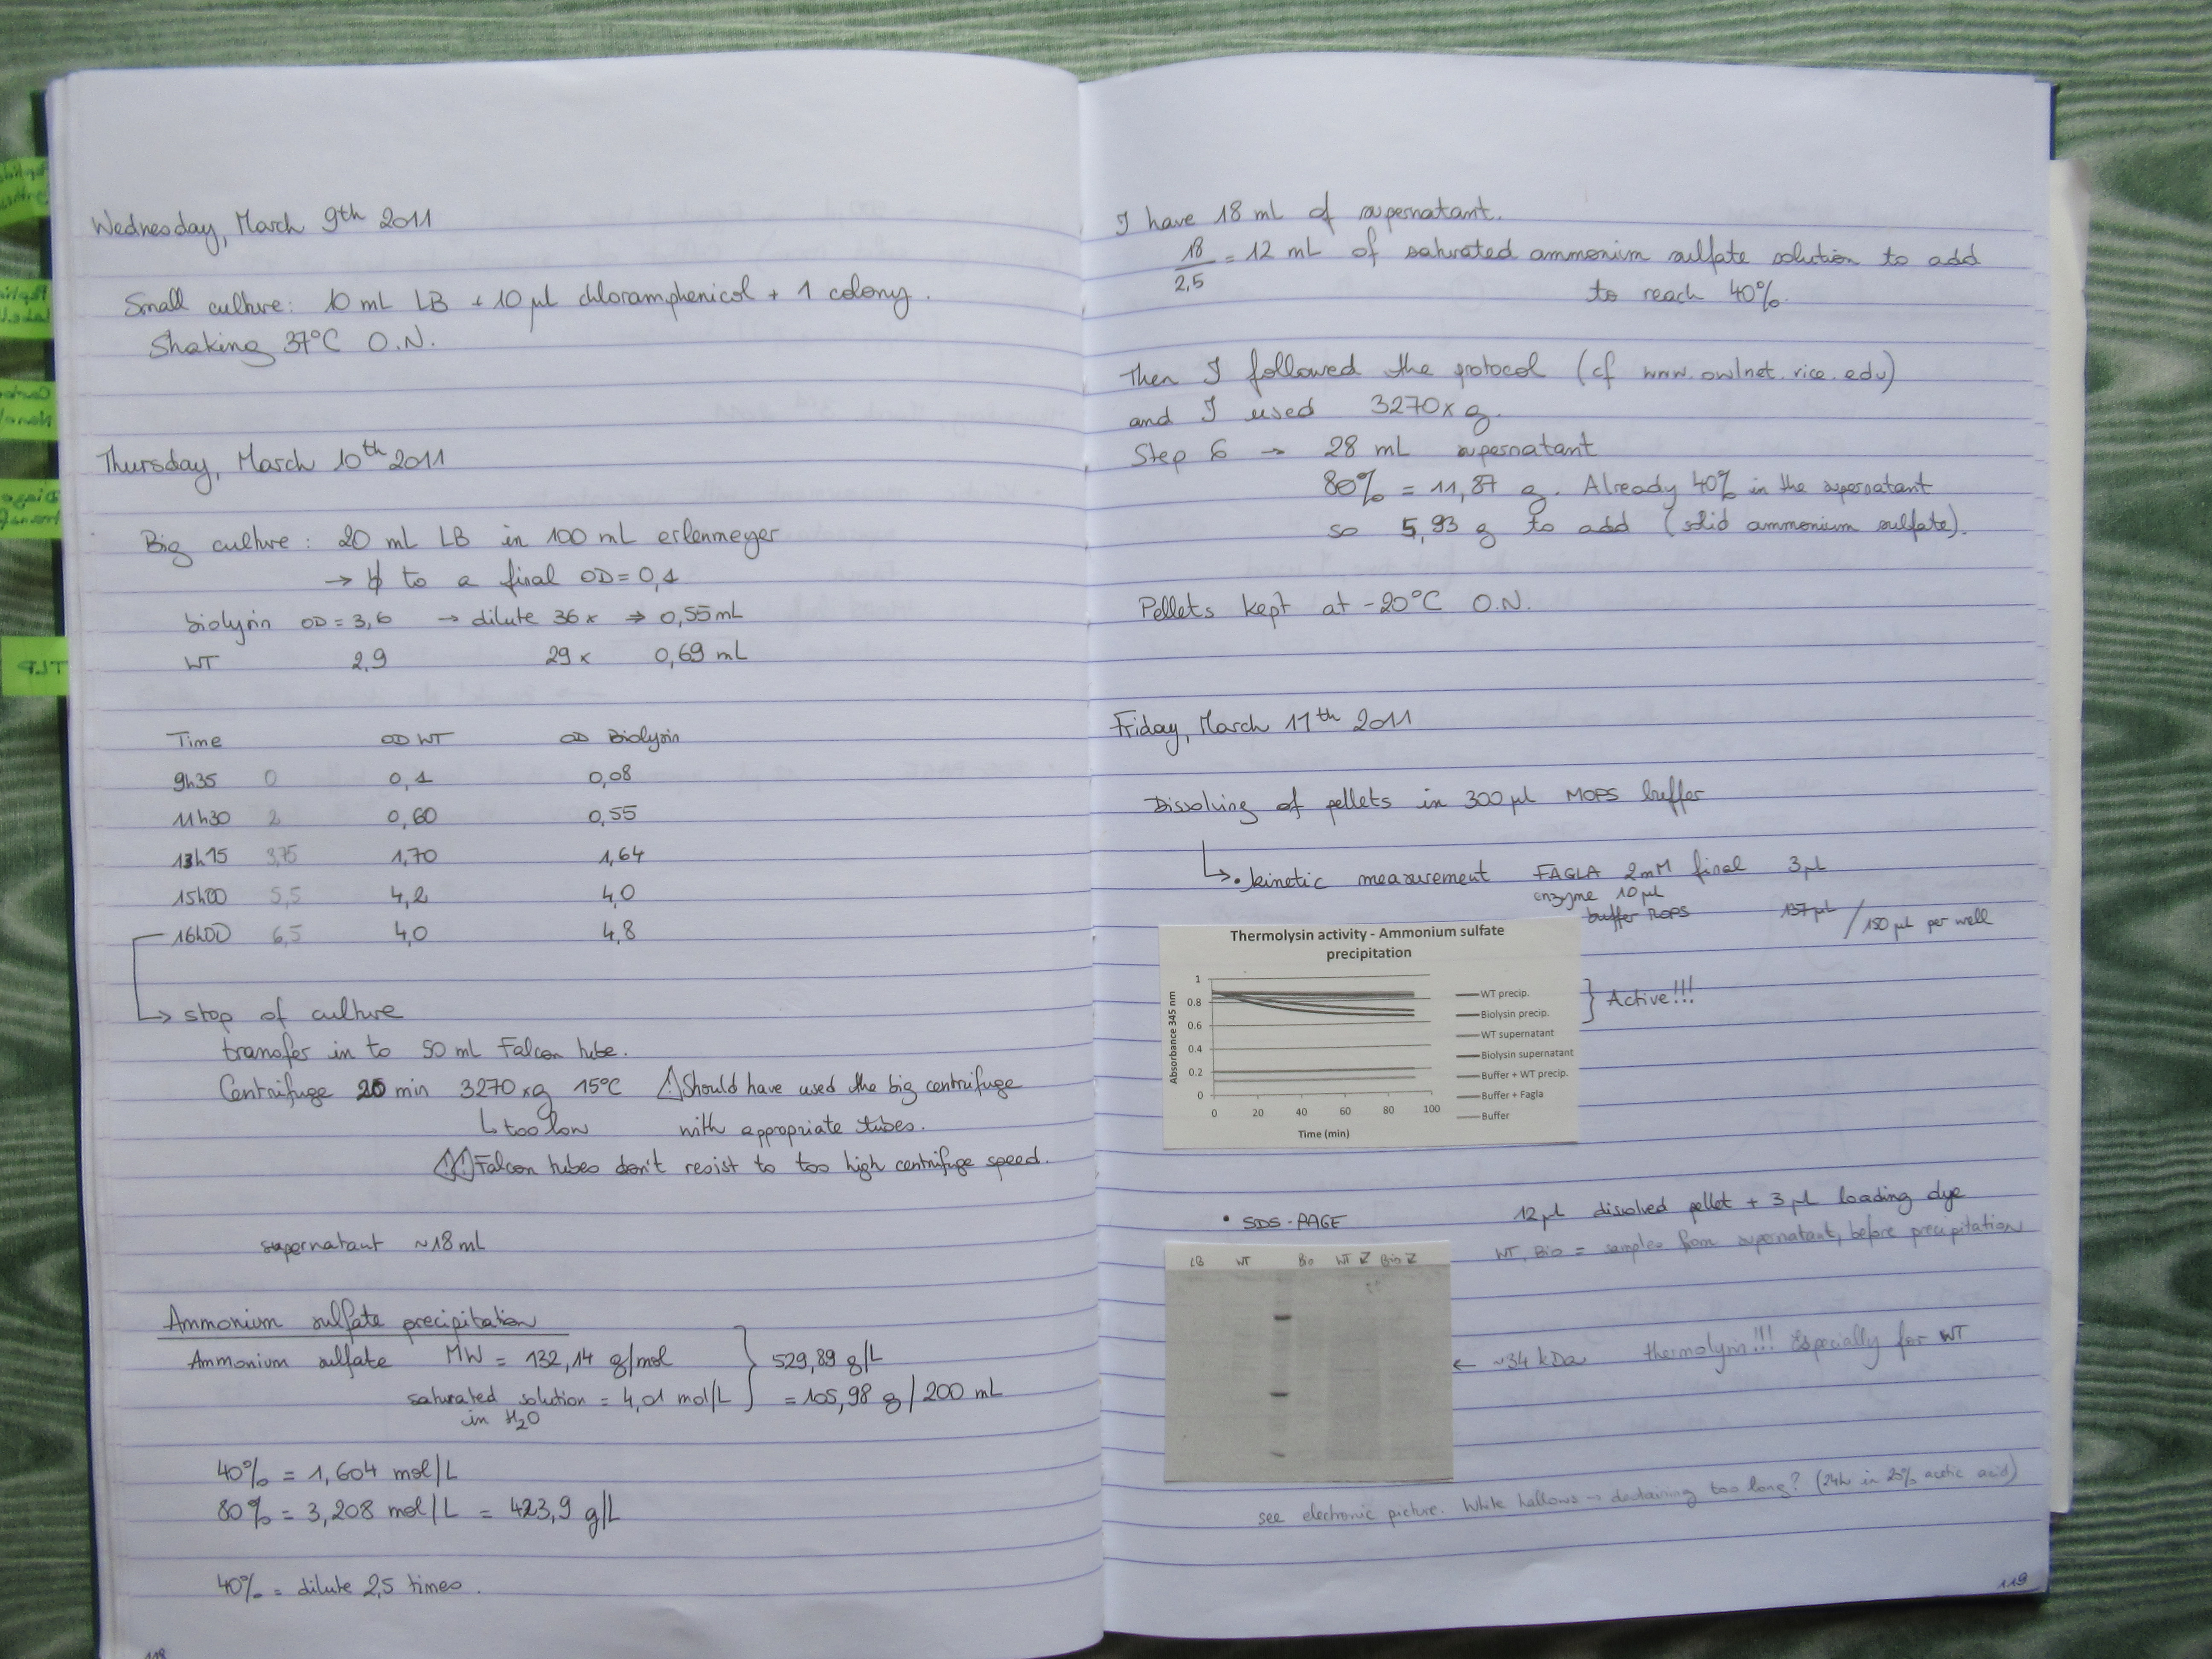 Wednesday, March 9th 2011
Small culture: 10 mL LB + 10 µl chloramphenicol + 1 colony.
Shaking 37°C O.N.
Thursday, March 10th 2011
Big culture: 20 mL LB in 100 mL erlenmeyer
→ to a final OD = 0,1
biolysin OD = 3,6 → dilute 36 x ⇒ 0,55 mL
WT 2,9 29 x 0,69 mL
Time OD WT OD Biolysin
9h35 0 0,1 0,08
11h30 2 0,60 0,55
13h15 3,75 1,70 1,64
15h00 5,5 4,2 4,0
16h00 6,5 4,0 4,8
↳ stop of culture
transfer in to 50 mL Falcon tube.
Centrifuge 20 min 3270 xg 15°C ⚠ Should have used the big centrifuge
↳ too low with appropriate tubes.
⚠ Falcon tubes don't resist to too high centrifuge speed.
supernatant ~18 mL
Ammonium sulfate precipitation
Ammonium sulfate MW = 132,14 g/mol } 529,89 g/L
saturated solution = 4,01 mol/L } = 105,98 g/200 mL
in H2O
40% = 1,604 mol/L
80% = 3,208 mol/L = 423,9 g/L
40% = dilute 2,5 times.
118
I have 18 mL of supernatant.
18/2,5 = 12 mL of saturated ammonium sulfate solution to add
to reach 40%.
Then I followed the protocol (cf www.owlnet.rice.edu)
and I used 3270 x g.
Step 6 → 28 mL supernatant
80% = 11,87 g. Already 40% in the supernatant
so 5,93 g to add (solid ammonium sulfate).
Pellets kept at -20°C O.N.
Friday, March 11th 2011
Dissolving of pellets in 300 µl MOPS buffer
↳ • kinetic measurement FAGLA 2mM final 3 µL
enzyme 10 µl
buffer MOPS 137 µL / 150 µL per well
Thermolysin activity - Ammonium sulfate
precipitation
Absorbance 345 nm
1
0.8
0.6
0.4
0.2
0
0 20 40 60 80 100
Time (min)
WT precip.
Biolysin precip.
WT supernatant
Biolysin supernatant
Buffer + WT precip.
Buffer + Fagla
Buffer
} Active!!!
• SDS-PAGE 12 µl dissolved pellet + 3 µl loading dye
WT, Bio = samples from supernatant, before precipitation
LB WT Bio WT Bio
← ~34 kDa thermolysin!!! Especially for WT
see electronic picture. White hallows → destaining too long? (24h in 25% acetic acid)
119
TLP